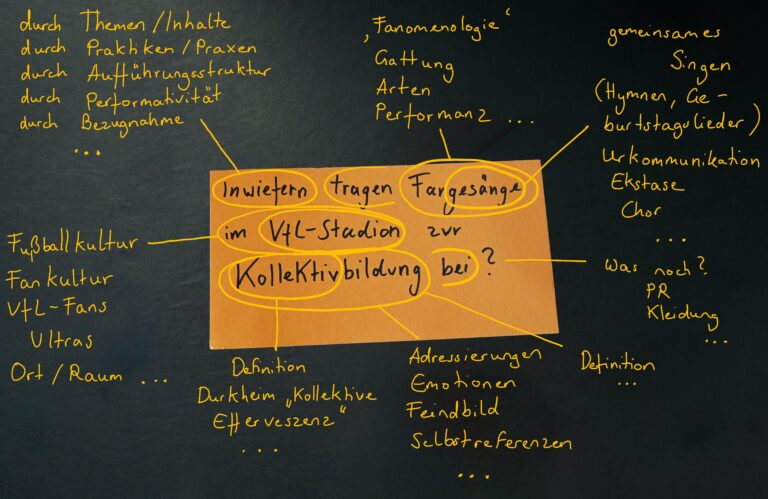 durch Themen/Inhalte
durch Praktiken/Praxen
durch Aufführungsstruktur
durch Performativität
durch Bezugnahme
...
"Fanomenologie"
Gattung
Arten
Performanz ...
gemeinsames
Singen
(Hymnen, Ge-
burtstagslieder)
Urkommunikation
Ekstase
Chor
...
Inwiefern tragen Fangesänge
im VfL-Stadion zur
Kollektivbildung bei?
Fußballkultur
Fankultur
VfL-Fans
Ultras
Ort/Raum ...
Was noch?
PR
Kleidung
...
Definition
Durkheim „Kollektive
Efferveszenz"
...
Adressierungen
Emotionen
Feindbild
Selbstreferenzen
...
Definition
...